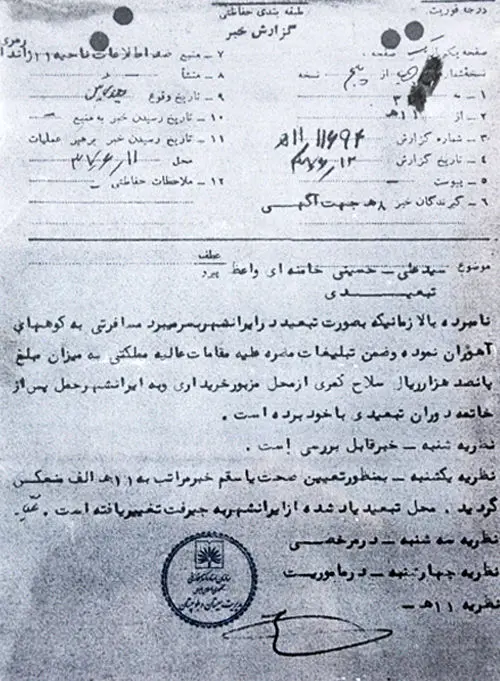 درجه فوریت
طبقه بندی حفاظتی
گزارش خبر
صفحه یکم از صفحه
نسخه شماره از پنج نسخه
۱ - به ۳
۲ - از ۱۱هـ
۳ - شماره گزارش ۱۱۶۹۴/۱۱هـ
۴ - تاریخ گزارش ۳۷/۶/۱۲
۵ - پیوست -
۶ - گیرندگان خبر ۸هـ جهت آگهی
۷ - منبع ضد اطلاعات ناحیه ژاندارمری
۸ - منشأ
۹ - تاریخ وقوع
۱۰ - تاریخ رسیدن خبر به منبع -
۱۱ - تاریخ رسیدن خبر برهبر عملیات
محل ۳۷/۶/۱۱
۱۲ - ملاحظات حفاظتی -
موضوع سیدعلی - حسینی خامنه ای واعظ
عطف
پیرو
تبعیدی
نامبرده بالا زمانیکه بصورت تبعید در ایرانشهر بسر میبرد مسافرتی به کوههای
آهوران نموده وضمن تبلیغات مضره علیه مقامات عالیه مملکتی به میزان مبلغ
پانصد هزار ریال سلاح کمری از محل مزبور خریداری و به ایرانشهر حمل پس از
خاتمه دوران تبعیدی با خود برده است .
نظریه شنبه - خبر قابل بررسی است .
نظریه یکشنبه - بمنظور تعیین صحت یا سقم خبر مراتب به ۱۱هـ الف منعکس
گردید . محل تبعید یاد شده از ایرانشهر به جیرفت تغییر یافته است .
نظریه سه شنبه - در مرخصی
نظریه چهارشنبه - در ماموریت
نظریه ۱۱هـ -